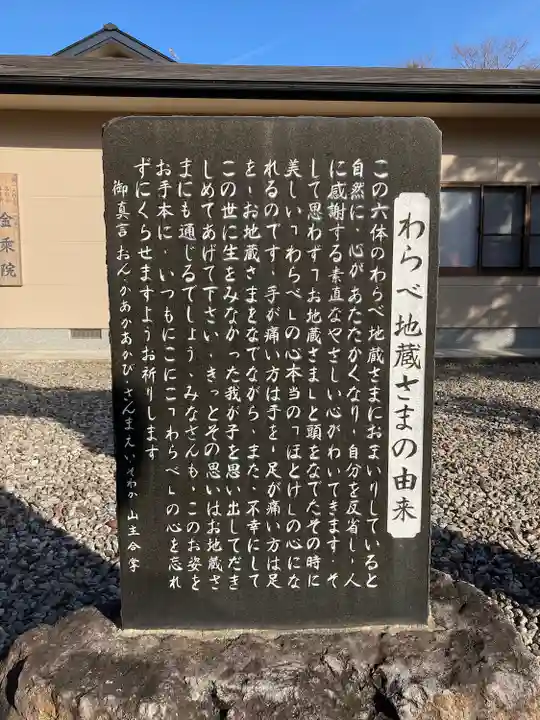 わらべ地蔵さまの由来
この六体のわらべ地蔵さまにおまいりしていると
自然に、心があたたかくなり、自分を反省し、人
に感謝する素直なやさしい心がわいてきます、そ
して思わず「お地蔵さま」と頭をなでたその時に
美しい「わらべ」の心本当の「ほとけ」の心にな
れるのです、手が痛い方は手を、足が痛い方は足
を、お地蔵さまをなでながら、また、不幸にして
この世に生をみなかった我が子を思い出してだき
しめてあげて下さい、きっとその思いはお地蔵さ
まにも通じるでしょう、みなさんも、このお姿を
お手本に、いつもにこにこ「わらべ」の心を忘れ
ずにくらせますようお祈りします
御真言 おん、かあかあかび、さんまえい、そわか 山主合掌
金乗院